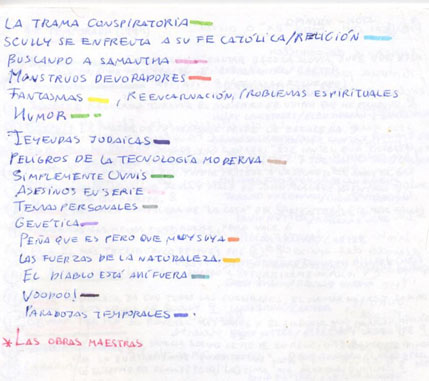 LA TRAMA CONSPIRATORIA
SCULLY SE ENFRENTA A SU FE CATÓLICA/RELIGIÓN
BUSCANDO A SAMANTHA
MONSTRUOS DEVORADORES
FANTASMAS , REENCARNACIÓN, PROBLEMAS ESPIRITUALES
HUMOR
LEYENDAS JUDAICAS
PELIGROS DE LA TECNOLOGÍA MODERNA
SIMPLEMENTE OVNIS
ASESINOS EN SERIE
TEMAS PERSONALES
GENÉTICA
PEÑA QUE ES PERO QUE MUY SUYA
LAS FUERZAS DE LA NATURALEZA.
EL DIABLO ESTÁ AHÍ FUERA
VOODOO!
PARADOJAS TEMPORALES .
*LAS OBRAS MAESTRAS